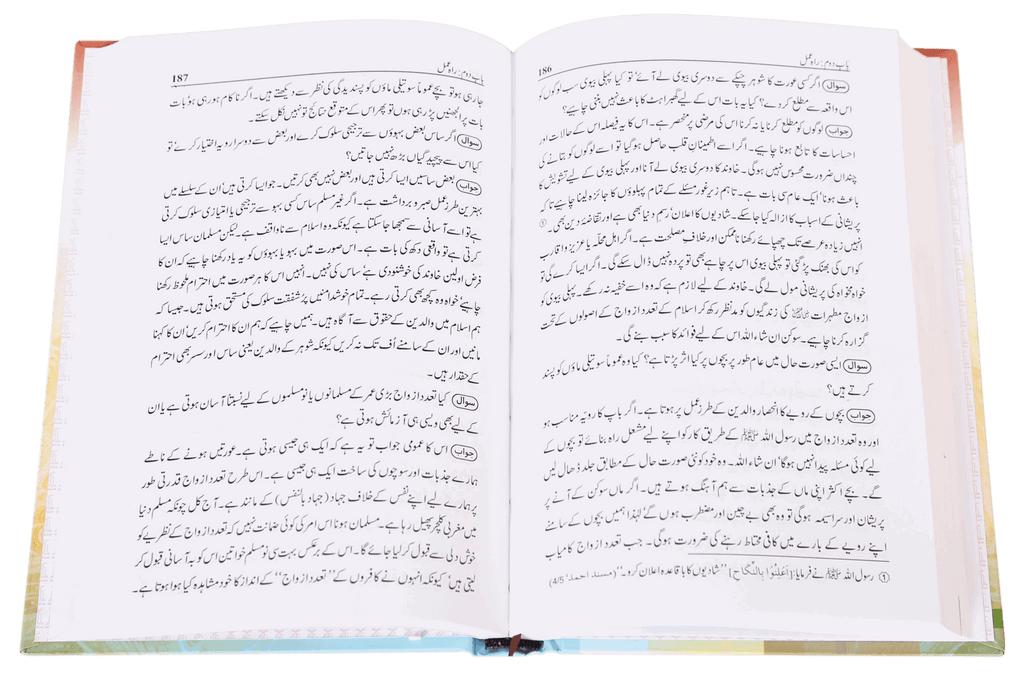 186
باب دوم: راہ عمل
سوال اگر کسی عورت کا شوہر چپکے سے دوسری بیوی لے آئے' تو کیا پہلی بیوی سب لوگوں کو
اس واقعہ سے مطلع کر دے؟ کیا یہ بات اس کے لیے گھبراہٹ کا باعث نہیں بنتی چاہیے؟
جواب لوگوں کو مطلع کرنا یا نہ کرنا اس کی مرضی پر منحصر ہے۔ اس کا یہ فیصلہ اس کے حالات اور
احساسات کا تابع ہونا چاہیے۔ اگر اسے اطمینان قلب حاصل ہو گیا تو اسے لوگوں کو بتانے کی
چنداں ضرورت محسوس نہیں ہوگی۔ خاوند کا دوسری بیوی لے آنا اور پہلی بیوی کے لیے تشویش کا
باعث ہونا' ایک عام سی بات ہے۔ تاہم زیر غور مسئلے کے تمام پہلوؤں کا جائزہ لینا چاہیے تاکہ
پریشانی کے اسباب کا ازالہ کیا جا سکے۔ شادیوں کا اعلان' رسم دنیا بھی ہے اور تقاضۂ دین بھی۔①
انہیں زیادہ عرصے تک چھپائے رکھنا ناممکن اور خلاف مصلحت ہے۔ اگر اہل محلّہ یا عزیز و اقارب
کو اس کی بھنک پڑ گئی تو پہلی بیوی اس پر چاہے بھی تو پردہ نہیں ڈال سکے گی۔ اگر ایسا کرے گی تو
خواہ مخواہ کی پریشانی مول لے گی۔ خاوند کے لیے لازم ہے کہ وہ اسے خفیہ نہ رکھے۔ پہلی بیوی کو
ازواج مطہرات کی زندگیوں کو مدنظر رکھ کر اسلام کے تعدد ازواج کے اصولوں کے تحت
گزارہ کرنا چاہیے۔ سوکن ان شاء اللہ اس کے لیے فوائد کا سبب بنے گی۔
سوال ایسی صورت حال میں عام طور پر بچوں پر کیا اثر پڑتا ہے؟ کیا وہ عموماً سوتیلی ماؤں کو پسند
کرتے ہیں؟
جواب بچوں کے رویے کا انحصار والدین کے طرز عمل پر ہوتا ہے۔ اگر باپ کا رویّہ مناسب ہو
اور وہ تعدد ازواج میں رسول اللہ ﷺ کے طریق کار کو اپنے لیے مشعل راہ بنائے تو بچوں کے
لیے کوئی مسئلہ پیدا نہیں ہوگا' ان شاء اللہ۔ وہ خود کو نئی صورت حال کے مطابق جلد ڈھال لیں
گے۔ بچے اکثر اپنی ماں کے جذبات سے ہم آہنگ ہوتے ہیں۔ اگر ماں سوکن کے آنے پر
پریشان اور سراسیمہ ہوگی تو وہ بھی بے چین اور مضطرب ہوں گے' لہٰذا ہمیں بچوں کے سامنے
اپنے رویے کے بارے میں کافی محتاط رہنے کی ضرورت ہوگی۔ جب تعدد ازواج کامیاب
① رسول اللہ ﷺ نے فرمایا: [أَعْلِنُوا بِالنِّكَاحِ] ''شادیوں کا باقاعدہ اعلان کرو۔'' (مسند احمد: 4/5)
187
باب دوم: راہ عمل
جا رہی ہو تو بچے عموماً سوتیلی ماؤں کو پسندیدگی کی نظر سے دیکھتے ہیں۔ اگر ناکام ہو رہی ہو' بات
بات پر الجھنیں پڑ رہی ہوں تو پھر اس کے متوقع نتائج تو نہیں نکل سکتے۔
سوال اگر ساس بعض بہوؤں سے ترجیحی سلوک کرے اور بعض سے دوسرا رویہ اختیار کرے تو
کیا اس سے پیچیدگیاں بڑھ نہیں جاتیں؟
جواب بعض ساسیں ایسا کرتی ہیں اور بعض نہیں بھی کرتیں۔ جو ایسا کرتی ہیں' اُن کے سلسلے میں
بہترین طرز عمل صبر و برداشت ہے۔ اگر غیر مسلم ساس کسی بہو سے ترجیحی یا امتیازی سلوک کرتی
ہے تو اسے آسانی سے سمجھا جا سکتا ہے کیونکہ وہ اسلام سے ناواقف ہے۔ لیکن مسلمان ساس ایسا
کرتی ہے تو واقعی دکھ کی بات ہے۔ اس صورت میں بہو یا بہوؤں کو یہ یاد رکھنا چاہیے کہ ان کا
فرض اولین خاوند کی خوشنودی ہے' ساس کی نہیں۔ انہیں اس کا ہر صورت میں احترام ملحوظ رکھنا
چاہیے' خواہ وہ کچھ بھی کرتی رہے۔ تمام خوشدامنیں پُر شفقت سلوک کی مستحق ہوتی ہیں۔ جیسا کہ
ہم اسلام میں والدین کے حقوق سے آگاہ ہیں۔ ہمیں چاہیے کہ ہم ان کا احترام کریں' اُن کا کہنا
مانیں اور ان کے سامنے اُف تک نہ کریں کیونکہ شوہر کے والدین یعنی ساس اور سسر بھی احترام
کے حقدار ہیں۔
سوال کیا تعدد ازواج بڑی عمر کے مسلمانوں یا نو مسلموں کے لیے نسبتاً آسان ہوتی ہے یا ان
کے لیے بھی ویسی ہی آزمائش ہوتی ہے؟
جواب اس کا عمومی جواب تو یہ ہے کہ ایک ہی جیسی ہوتی ہے۔ عورتیں ہونے کے ناطے
ہمارے جذبات اور سوچوں کی ساخت ایک ہی جیسی ہے۔ اس طرح تعدد ازواج قدرتی طور
پر ہمارے لیے اپنے نفس کے خلاف جہاد (جہاد بالنفس) کے مانند ہے۔ آج کل چونکہ مسلم دنیا
میں مغربی کلچر پھیل رہا ہے۔ مسلمان ہونا اس امر کی کوئی ضمانت نہیں کہ تعدد ازواج کے نظریے کو
خوش دلی سے قبول کر لیا جائے گا۔ اس کے برعکس بہت سی نو مسلم خواتین اس کو بہ آسانی قبول کر
لیتی ہیں' کیونکہ انہوں نے کافروں کے ''تعدد ازواج'' کے انداز کا خود مشاہدہ کیا ہوا ہوتا ہے۔